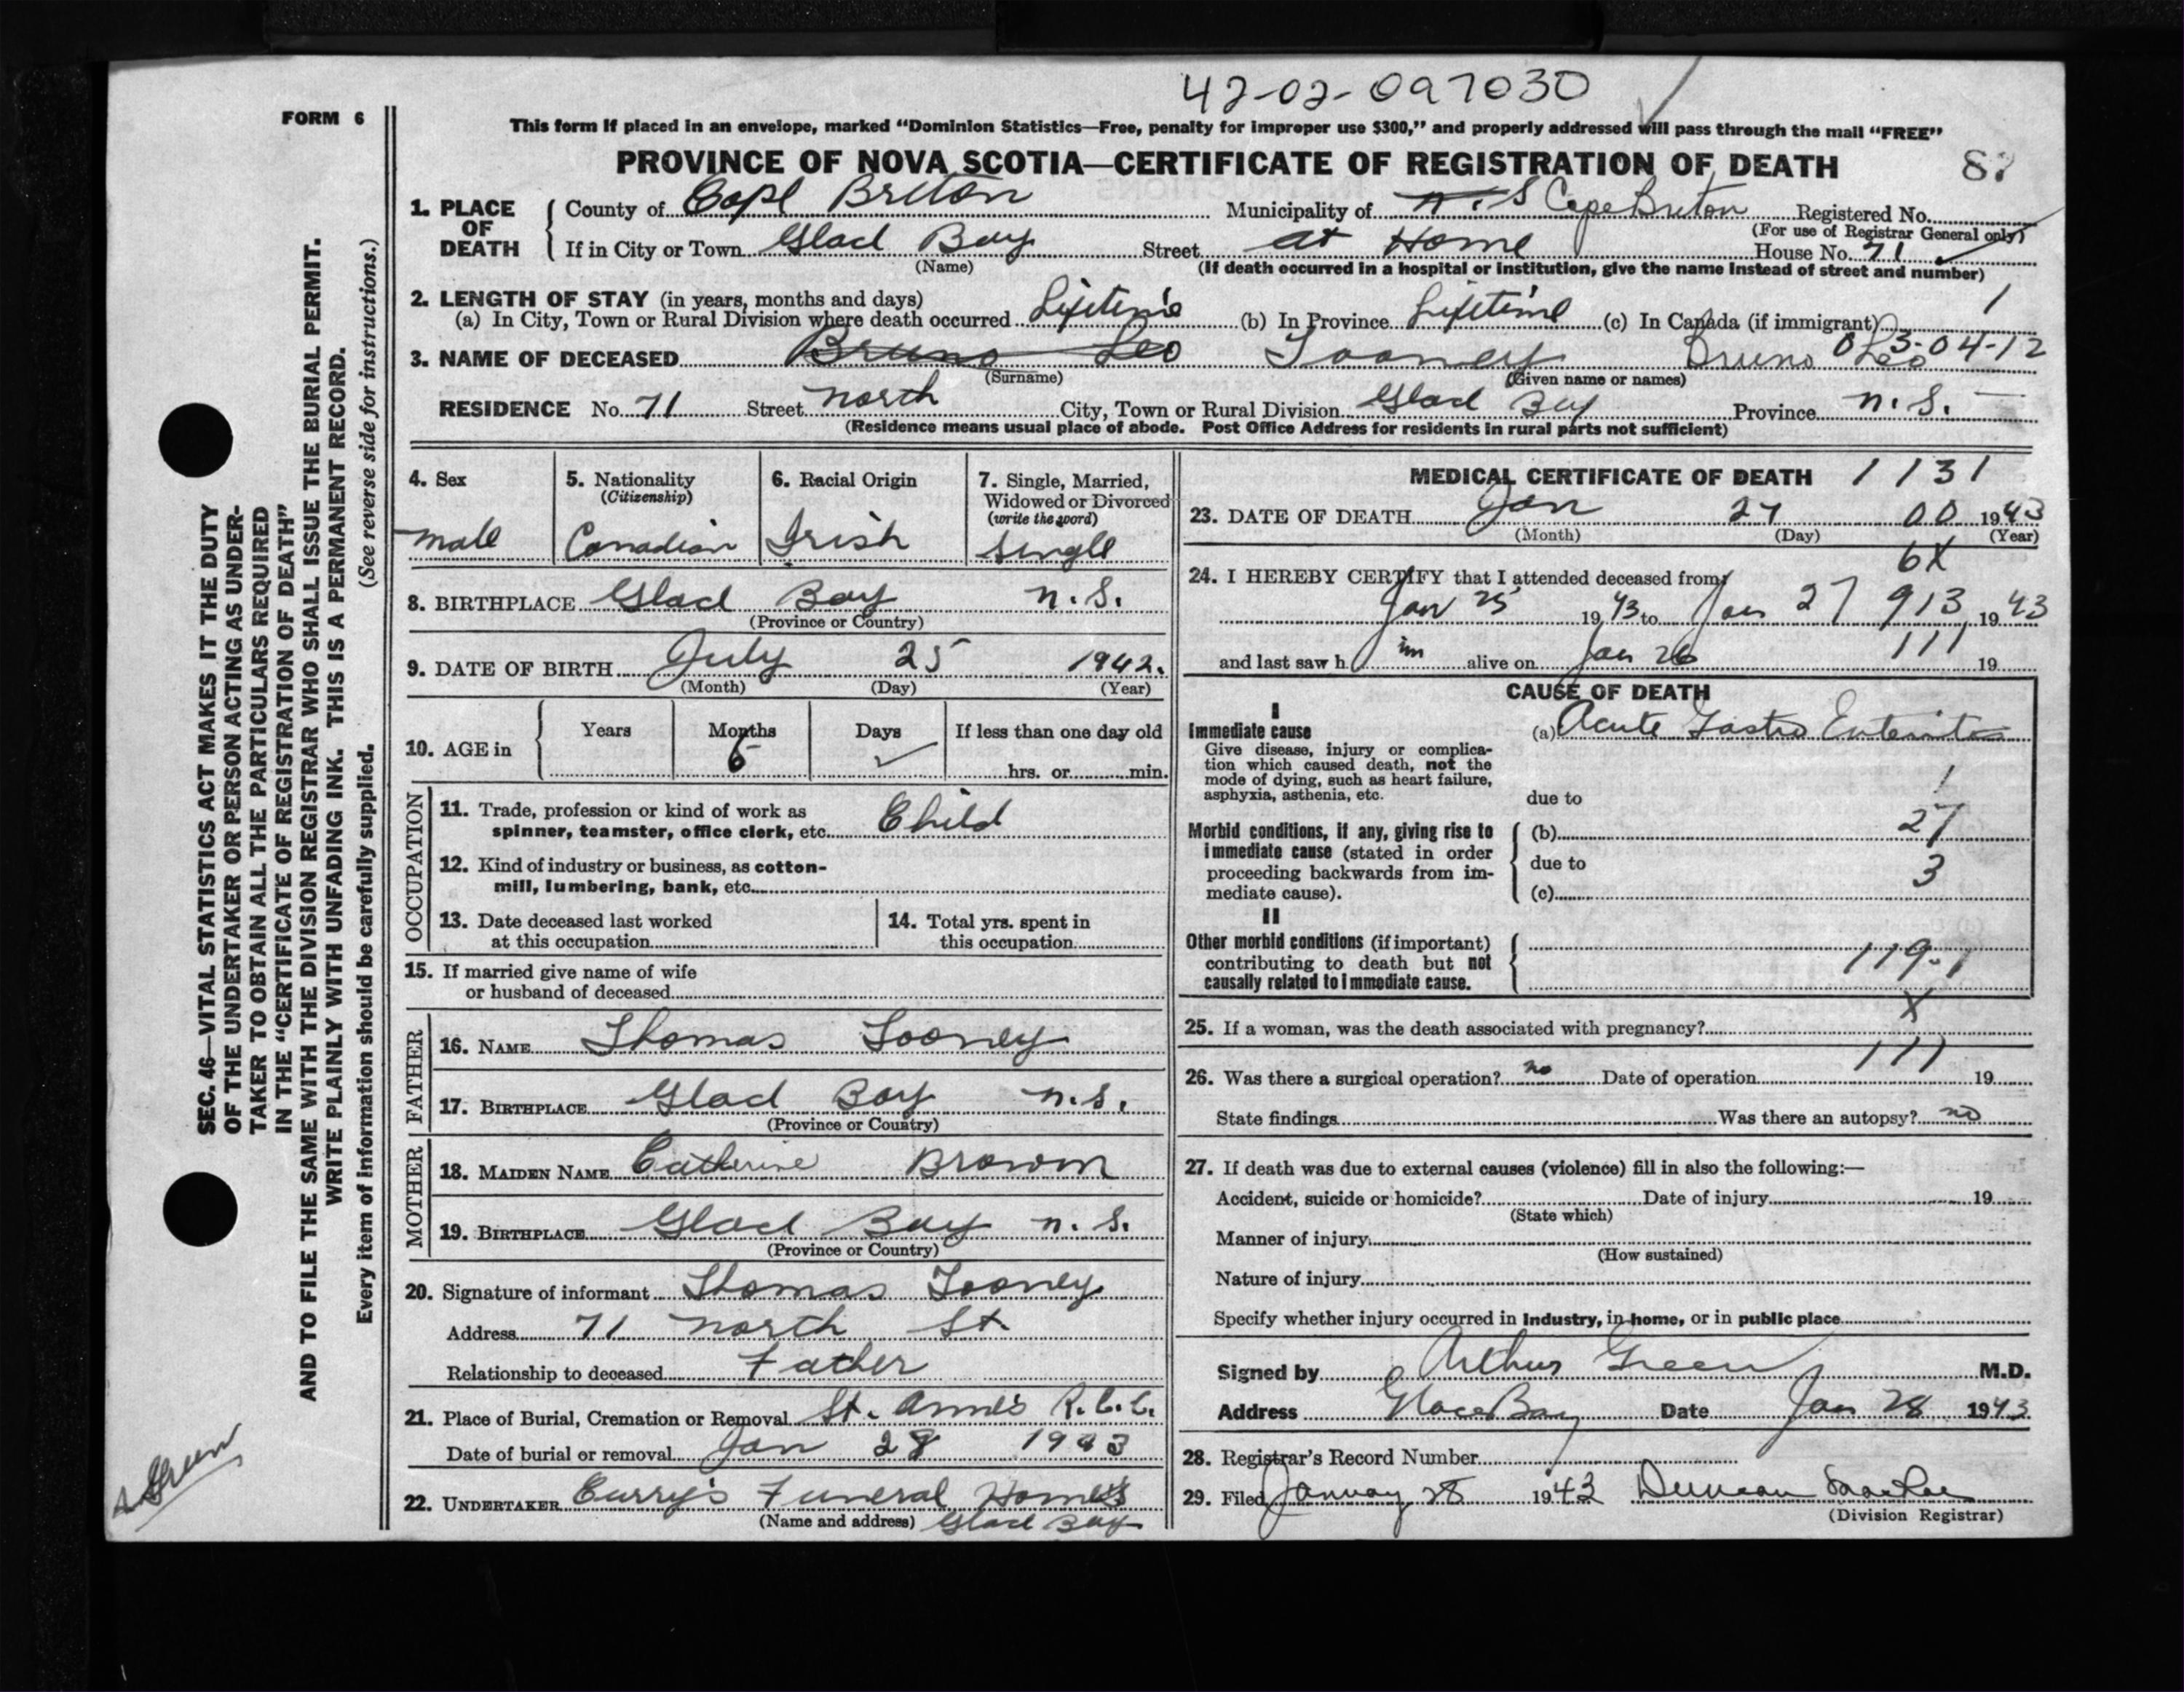 42-02-097030
FORM 6
This form if placed in an envelope, marked "Dominion Statistics—Free, penalty for improper use $300," and properly addressed will pass through the mail "FREE"
PROVINCE OF NOVA SCOTIA—CERTIFICATE OF REGISTRATION OF DEATH
1. PLACE OF DEATH { County of Cape Breton Municipality of N.S Cape Breton Registered No.
(For use of Registrar General only)
If in City or Town Glace Bay Street at Home House No. 71
(Name) (If death occurred in a hospital or institution, give the name instead of street and number)
2. LENGTH OF STAY (in years, months and days)
(a) In City, Town or Rural Division where death occurred Lifetime (b) In Province Lifetime (c) In Canada (if immigrant) 1
03-04-12
3. NAME OF DECEASED Bruno Leo Tooney Bruno Leo
(Surname) (Given name or names)
RESIDENCE No. 71 Street North City, Town or Rural Division Glace Bay Province N.S.
(Residence means usual place of abode. Post Office Address for residents in rural parts not sufficient)
4. Sex
male
5. Nationality
(Citizenship)
Canadian
6. Racial Origin
Irish
7. Single, Married,
Widowed or Divorced
(write the word)
Single
8. BIRTHPLACE Glace Bay N.S.
(Province or Country)
9. DATE OF BIRTH July 25 1942.
(Month) (Day) (Year)
10. AGE in { Years Months Days If less than one day old
6 hrs. or min.
OCCUPATION
11. Trade, profession or kind of work as
spinner, teamster, office clerk, etc. Child
12. Kind of industry or business, as cotton-
mill, lumbering, bank, etc.
13. Date deceased last worked
at this occupation
14. Total yrs. spent in
this occupation
15. If married give name of wife
or husband of deceased
FATHER
16. NAME Thomas Tooney
17. BIRTHPLACE Glace Bay N.S.
(Province or Country)
MOTHER
18. MAIDEN NAME Catherine Brown
19. BIRTHPLACE Glace Bay N.S.
(Province or Country)
20. Signature of informant Thomas Tooney
Address 71 North St
Relationship to deceased Father
21. Place of Burial, Cremation or Removal St. Anne's R.C.C.
Date of burial or removal Jan 28 1943
22. UNDERTAKER Curry's Funeral Home
(Name and address) Glace Bay
MEDICAL CERTIFICATE OF DEATH 1131
23. DATE OF DEATH Jan 27 00 1943
(Month) (Day) (Year)
6X
24. I HEREBY CERTIFY that I attended deceased from
Jan 25 1943 to Jan 27 913 1943
and last saw him alive on Jan 26 111 19
CAUSE OF DEATH
I
Immediate cause
Give disease, injury or complica-
tion which caused death, not the
mode of dying, such as heart failure,
asphyxia, asthenia, etc.
(a) Acute Gastro Enteritis
1
due to
Morbid conditions, if any, giving rise to
immediate cause (stated in order
proceeding backwards from im-
mediate cause).
(b) 27
due to 3
(c)
II
Other morbid conditions (if important)
contributing to death but not
causally related to immediate cause.
119-1
X
25. If a woman, was the death associated with pregnancy?
111
26. Was there a surgical operation? no Date of operation 19
State findings Was there an autopsy? no
27. If death was due to external causes (violence) fill in also the following:—
Accident, suicide or homicide? Date of injury 19
(State which)
Manner of injury
(How sustained)
Nature of injury
Specify whether injury occurred in industry, in home, or in public place
Signed by Arthur Green M.D.
Address Glace Bay Date Jan 28 1943
28. Registrar's Record Number
29. Filed January 28 1943 Duncan
(Division Registrar)
SEC. 46—VITAL STATISTICS ACT MAKES IT THE DUTY
OF THE UNDERTAKER OR PERSON ACTING AS UNDER-
TAKER TO OBTAIN ALL THE PARTICULARS REQUIRED
IN THE "CERTIFICATE OF REGISTRATION OF DEATH"
AND TO FILE THE SAME WITH THE DIVISION REGISTRAR WHO SHALL ISSUE THE BURIAL PERMIT.
WRITE PLAINLY WITH UNFADING INK. THIS IS A PERMANENT RECORD.
Every item of information should be carefully supplied. (See reverse side for instructions.)
A Green